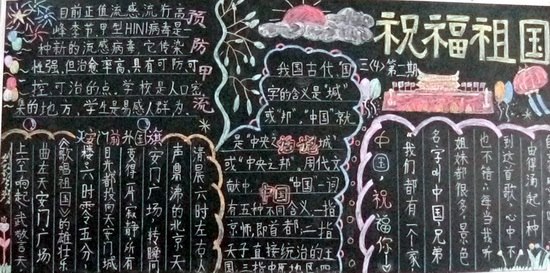 目前正值流感流行高
峰季节,甲型H1N1病毒是一
种新的流感病毒,它传染
性强,但治愈率高,具有可防可
控可治的点,学校是人口密
集的地方,学生是易感人群为
预防甲流
天安门前升国旗
清晨六时左右人
声鼎沸的北京天
安门广场转瞬间
变得一片寂静所有
目光都投向天安门城
楼六时零五分
《歌唱祖国》的雄壮乐
曲在天安门广场
上空响起武警天
我国古代,国
字的含义是“城”
或“邦”。“中国”就
是“中央之城”
或“中央之邦”。用代文
献中,“中国”一词
有五种不同含义,一指
京师,即首都;二指
天子直接统治的王
国;三指中原地区四
话说
中国
祝福祖国
三(4)第二期
中国,祝福你!
“我们都有一个家,
名字叫中国兄弟
姐妹都很多,景色
也不错”每当我听
到这首歌,心中不
由得涌起一种